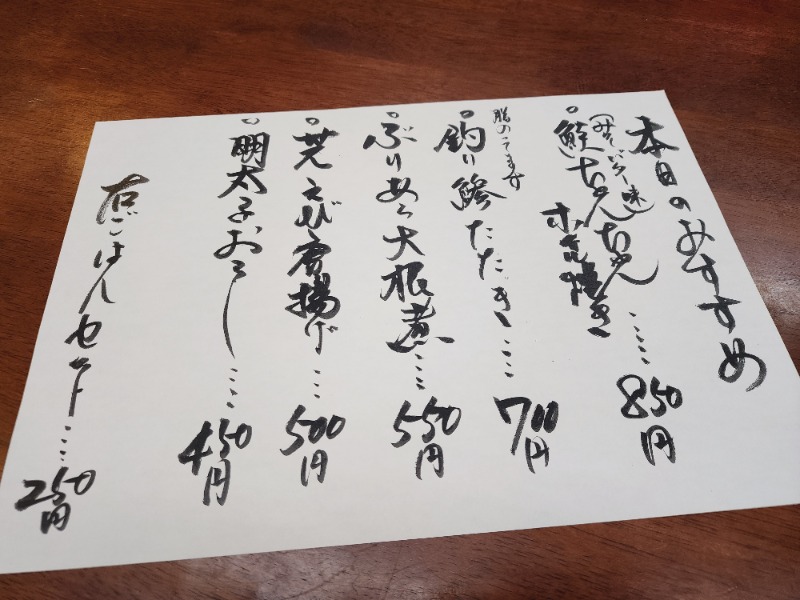 本日のおすすめ
(みそバター味)
○鮭ちゃんちゃん
ホイル焼き……850円
脂のってます
○釣り鯵たたき……700円
○ぶりあら大根煮……550円
○芝えび唐揚げ……500円
○明太子おろし……450円
右ごはんセット……250円